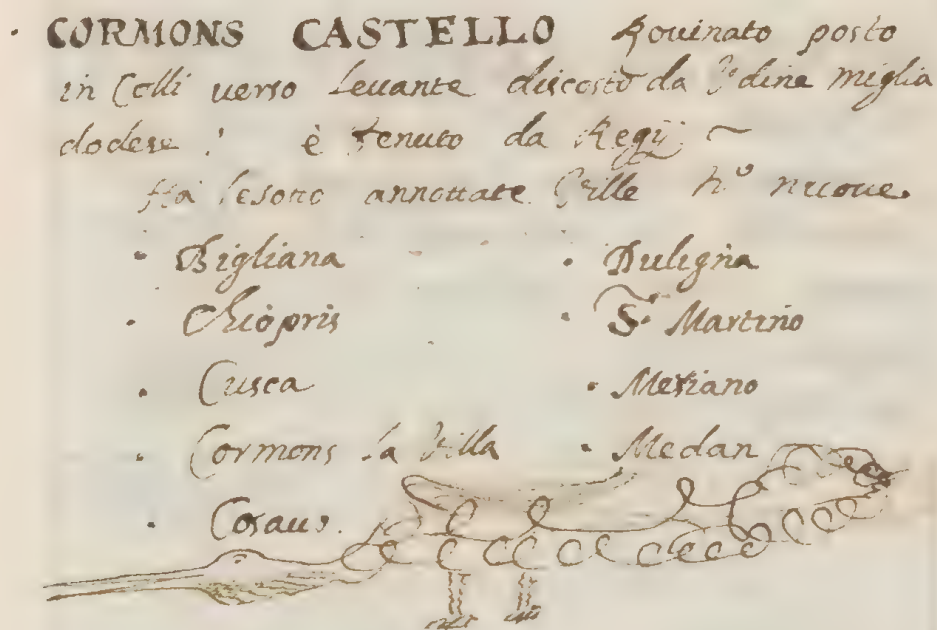 CORMONS CASTELLO Rouinato posto
in Colli uerso Leuante discosto da Vdine miglia
dodese è tenuto da Regij
Hà annottate Ville n.º nuoue
Bigliana
Chiopris
Cusca
Cormons la Villa
Cosaus.
Dulegna
S. Martino
Meriano
Medan